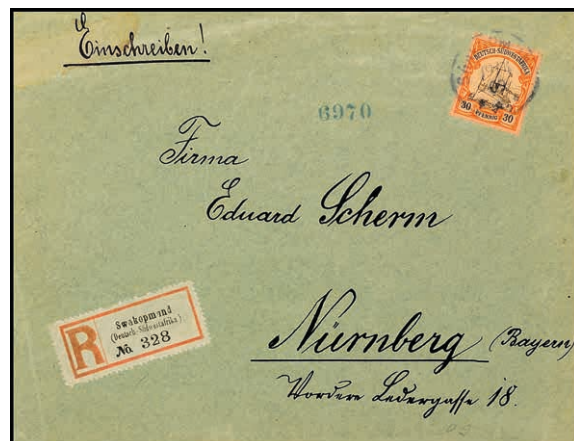 Einschreiben!
DEUTSCH-SÜDWESTAFRIKA
30 PFENNIG 30
6970
Firma
Eduard Scherm
Swakopmund
(Deutsch-Südwestafrika)
R No. 328
Nürnberg (Bayern)
Vordere Ledergasse 18.